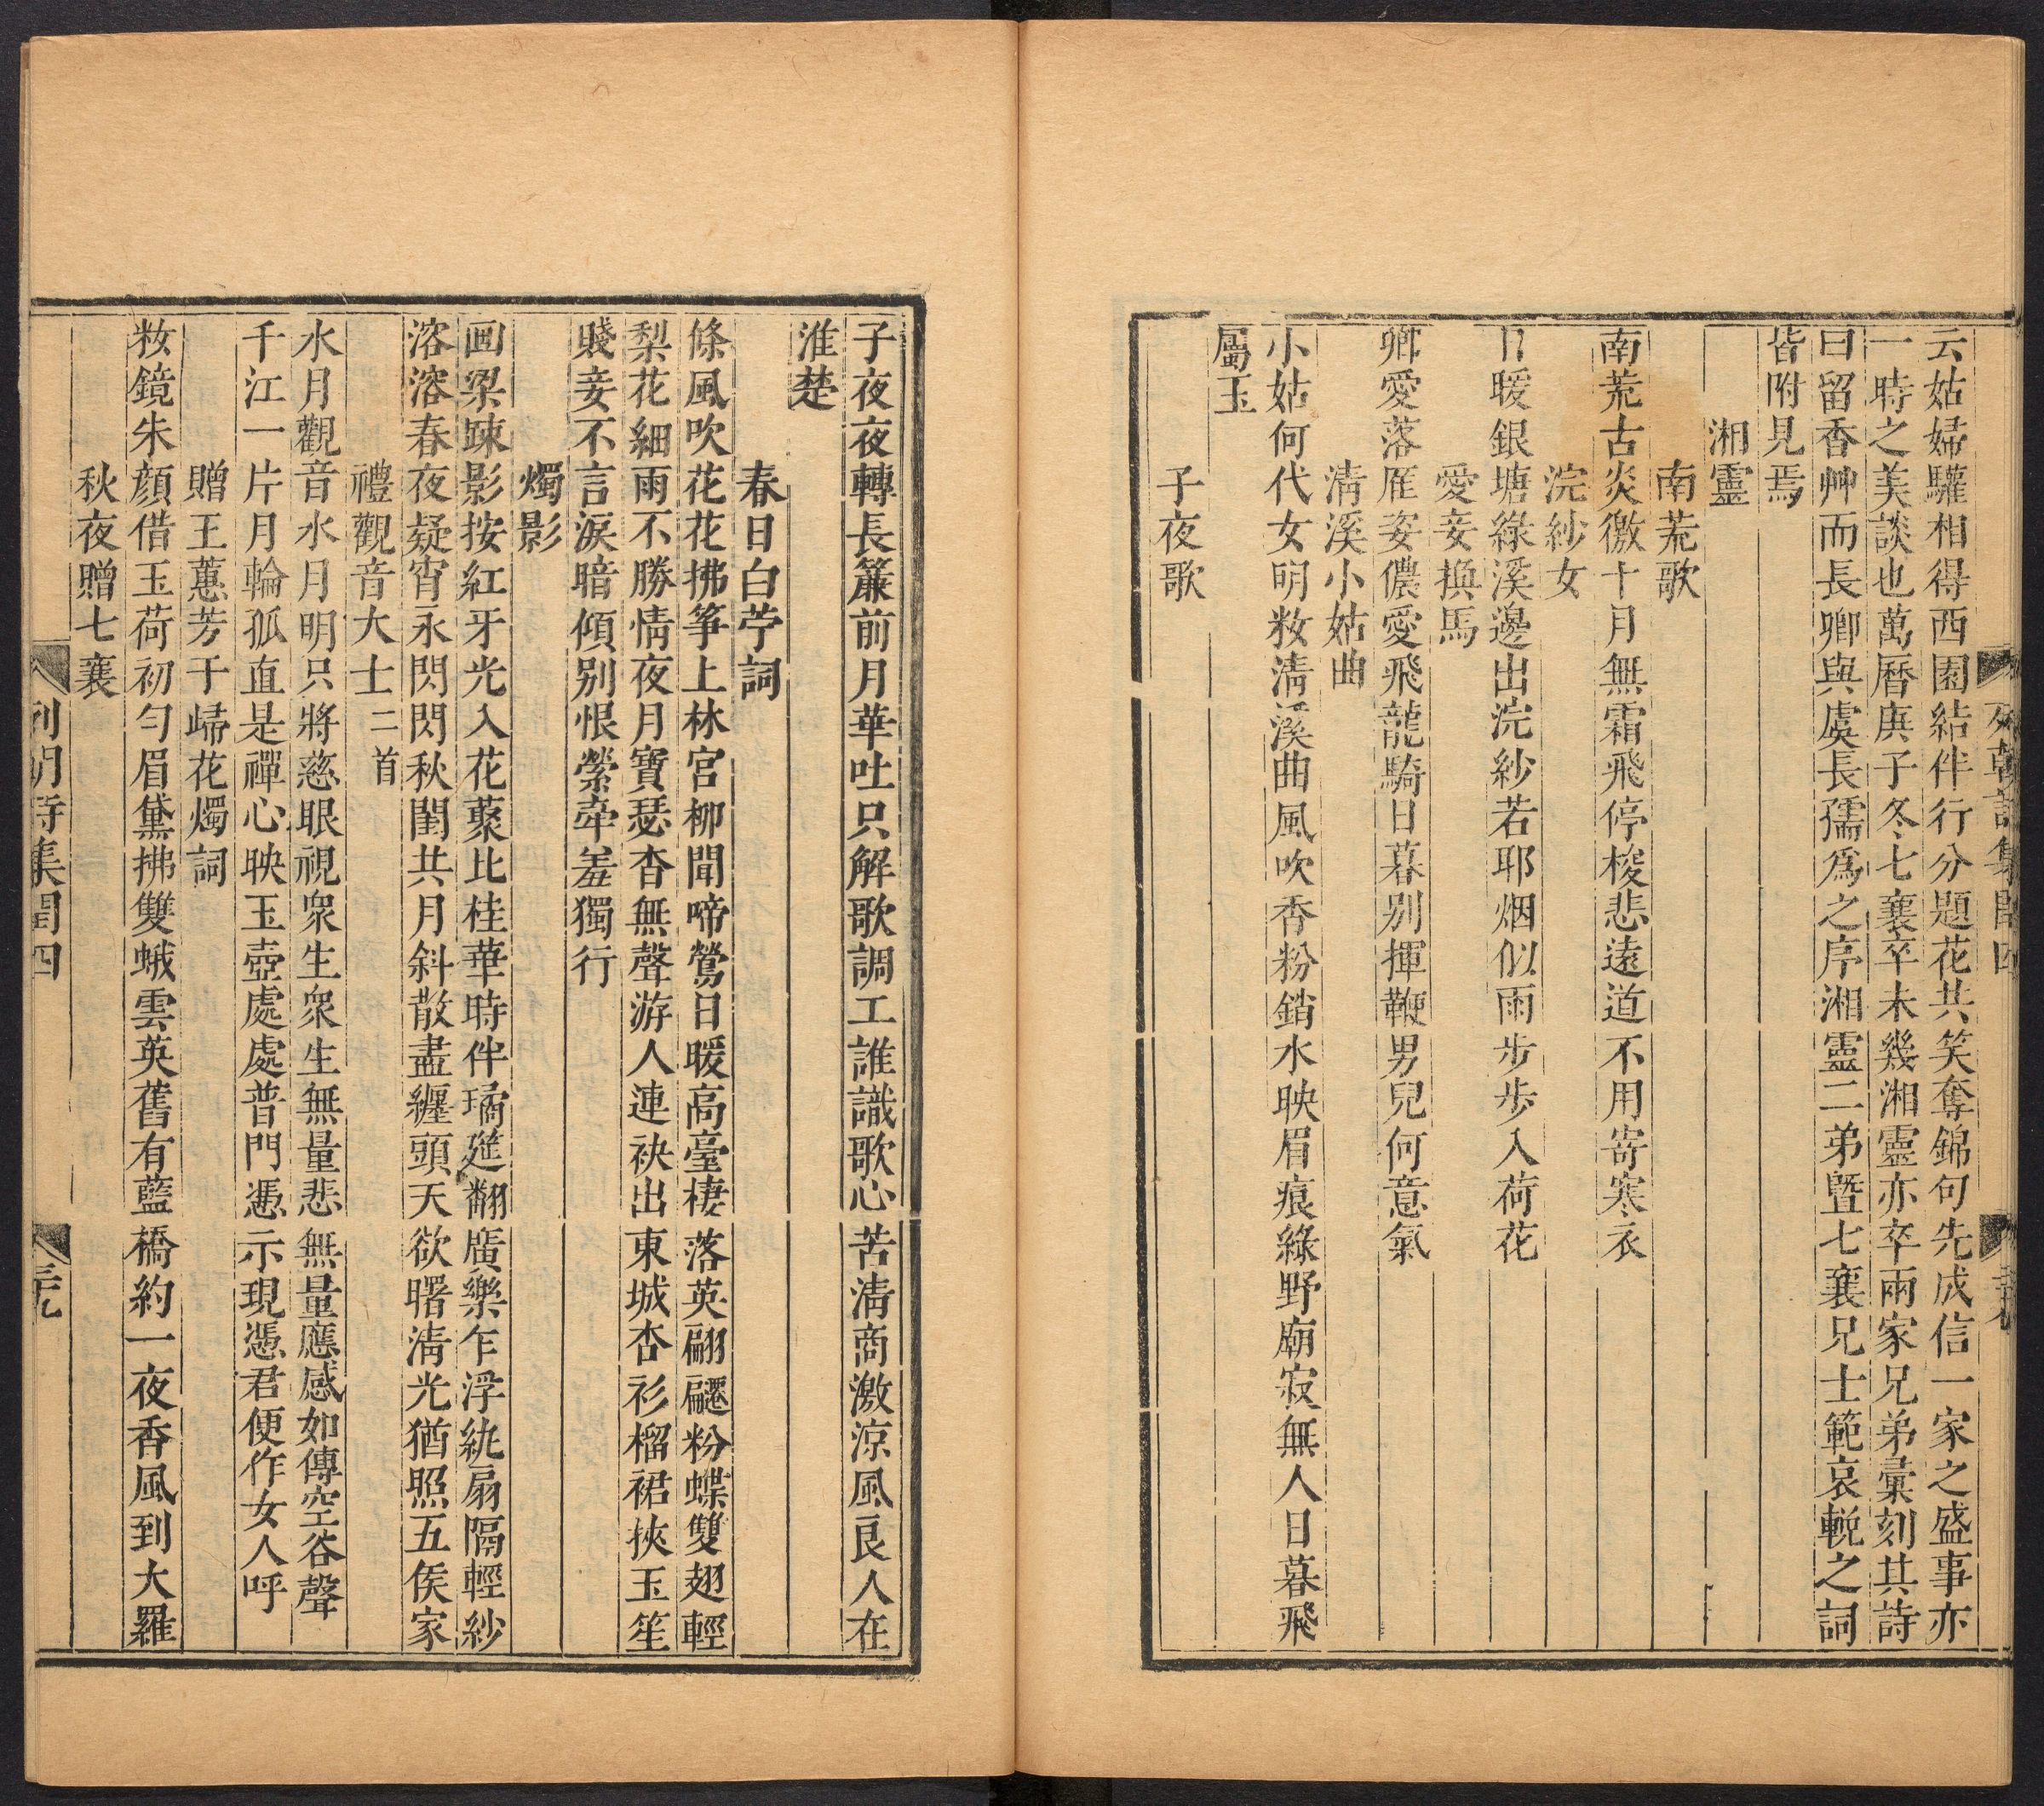 云姑婦驩相得西園結伴行分題花共笑奪錦句先成信一家之盛事亦
一時之美談也萬曆庚子冬七襄卒未幾湘靈亦卒兩家兄弟彙刻其詩
曰留香艸而長卿與虞長孺爲之序湘靈二弟曁七襄兄士範哀輓之詞
皆附見焉
湘靈
南荒歌
南荒古炎徼十月無霜飛停梭悲遠道不用寄寒衣
浣紗女
日暖銀塘綠溪邊出浣紗若耶烟似雨步步入荷花
愛妾換馬
卿愛落雁姿儂愛飛龍騎日暮别揮鞭男兒何意氣
淸溪小姑曲
小姑何代女明粧淸溪曲風吹香粉銷水映眉痕綠野廟寂無人日暮飛
屬玉
子夜歌
子夜夜轉長簾前月華吐只解歌調工誰識歌心苦淸商激涼風良人在
淮楚
春日白苧詞
條風吹花花拂箏上林宮柳聞啼鶯日暖高臺棲落英翩䙴粉蝶雙翅輕
梨花細雨不勝情夜月寶瑟杳無聲游人連袂出東城杏衫榴裙挾玉笙
賤妾不言淚暗傾别恨縈牽羞獨行
燭影
画梁踈影按紅牙光入花蘂比桂華時伴璚筵翻廣樂乍浮紈扇隔輕紗
溶溶春夜疑宵永閃閃秋閨共月斜散盡纏頭天欲曙淸光猶照五侯家
禮觀音大士二首
水月觀音水月明只將慈眼視衆生衆生無量悲無量應感如傳空谷聲
千江一片月輪孤直是禪心映玉壺處處普門憑示現憑君便作女人呼
贈王蕙芳于歸花燭詞
粧鏡朱顏借玉荷初勻眉黛拂雙蛾雲英舊有藍橋約一夜香風到大羅
秋夜贈七襄
列朝詩集閏四
三九